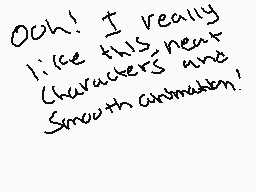 Ooh! I really
like this, neat
characters and
smooth animation!